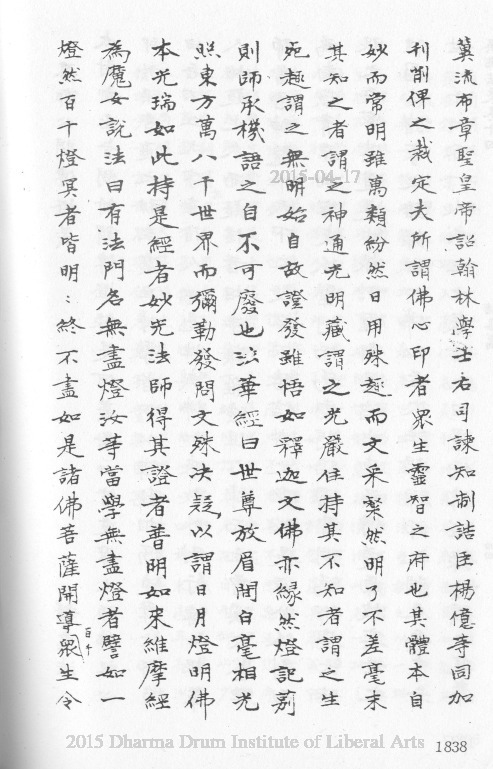 冀流布章聖皇帝詔翰林學士右司諫知制誥臣楊億等同加
刊削俾之裁定夫所謂佛心印者眾生靈智之府也其體本自
妙而常明雖萬類紛然日用殊趣而文采粲然明了不差毫末
其知之者謂之神通光明藏謂之光嚴住持其不知者謂之生
死趣謂之無明始自故證發雖悟如釋迦文佛亦緣然燈記莂
則師承機語之自不可廢也法華經曰世尊放眉間白毫相光
照東方萬八千世界而彌勒發問文殊決疑以謂日月燈明佛
本光瑞如此持是經者妙光法師得其證者普明如來維摩經
為魔女說法曰有法門名無盡燈汝等當學無盡燈者譬如一
燈然百千燈冥者皆明：終不盡如是諸佛菩薩開導眾生令
百千
2015-04-17
2015 Dharma Drum Institute of Liberal Arts
1838